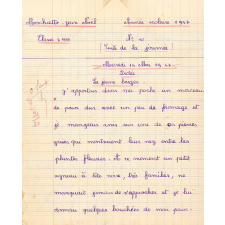 Année scolaire 1947
Classe
Texte de la journée
Mercredi 14 Mai 1947
Dictée
Le jeune berger
j'apportais dans ma poche un morceau
de pain dur avec un peu de fromage et
je mangeais assis sur une de ces pierres
grises qui montraient leur nez entre les
plantes fleuries. A ce moment un petit
agneau à tête noire, très familier, ne
manquait jamais de s'approcher et je lui
donnais quelques bouchées de mon pain.